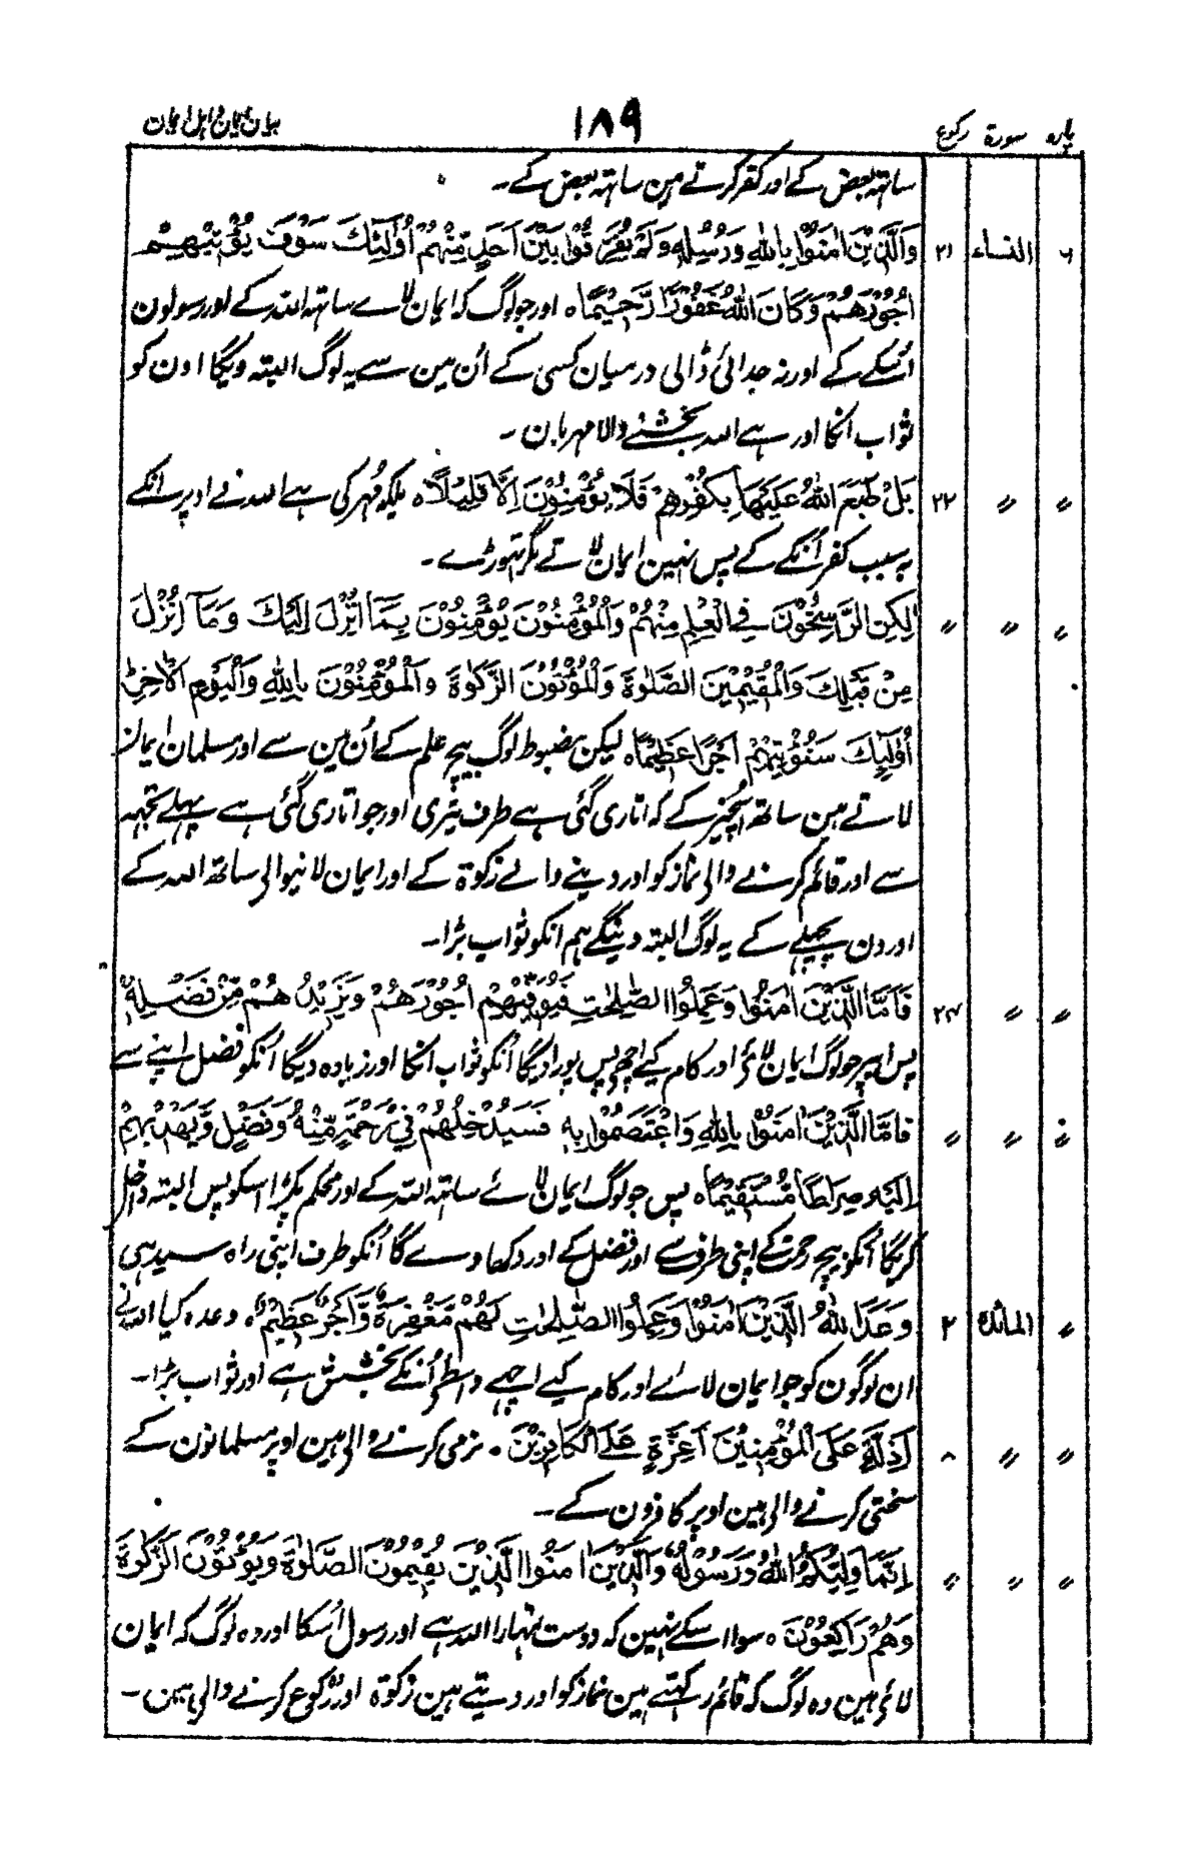 پارہ سورۃ رکوع ١٨٩ بیان ایمان و اہل ایمان
ساتھ بعض کے اور کفر کرتے ہین ساتھ بعض کے۔
٦ النساء ٢١ وَالَّذِيْنَ اٰمَنُوْا بِاللّٰهِ وَرُسُلِهٖ وَلَمْ يُفَرِّقُوْا بَيْنَ اَحَدٍ مِّنْهُمْ اُولٰٓئِكَ سَوْفَ يُؤْتِيْهِمْ
اُجُوْرَهُمْ وَكَانَ اللّٰهُ غَفُوْرًا رَّحِيْمًا ہ اور جو لوگ کہ ایمان لاے ساتھ اللہ کے اور رسولون
اُسکے کے اور نہ جدائی ڈالی درمیان کسی کے اُن مین سے یہ لوگ البتہ دیگا اون کو
ثواب انکا اور ہے اللہ بخشنے والا مہربان ۔
〃 〃 ٢٢ بَلْ طَبَعَ اللّٰهُ عَلَيْهَا بِكُفْرِهِمْ فَلَا يُؤْمِنُوْنَ اِلَّا قَلِيْلًا ہ بلکہ مُہر کی ہے اللہ نے اوپر انکے
بہ سبب کفر اُنکے کے پس نہین ایمان لاتے مگر تھوڑے ۔
〃 〃 〃 لٰكِنِ الرَّاسِخُوْنَ فِي الْعِلْمِ مِنْهُمْ وَالْمُؤْمِنُوْنَ يُؤْمِنُوْنَ بِمَآ اُنْزِلَ اِلَيْكَ وَمَآ اُنْزِلَ
مِنْ قَبْلِكَ وَالْمُقِيْمِيْنَ الصَّلٰوةَ وَالْمُؤْتُوْنَ الزَّكٰوةَ وَالْمُؤْمِنُوْنَ بِاللّٰهِ وَالْيَوْمِ الْاٰخِرِ
اُولٰٓئِكَ سَنُؤْتِيْهِمْ اَجْرًا عَظِيْمًا ہ لیکن مضبوط لوگ بیچ علم کے اُن مین سے اور مسلمان ایمان
لاتے ہین ساتھ اسچیز کے کہ اتاری گئی ہے طرف تیری اور جو اتاری گئی ہے پہلے تجھہ
سے اور قائم کرنے والی نماز کو اور دینے والے زکوۃ کے اور ایمان لانیوالی ساتھ اللہ کے
اور دن پچھلے کے یہ لوگ البتہ دینگے ہم انکو ثواب بڑا۔
〃 〃 ٢٤ فَاَمَّا الَّذِيْنَ اٰمَنُوْا وَعَمِلُوا الصّٰلِحٰتِ فَيُوَفِّيْهِمْ اُجُوْرَهُمْ وَيَزِيْدُهُمْ مِّنْ فَضْلِهٖ
پس اپر جو لوگ ایمان لائے اور کام کیے اچھے پس پورا دیگا اُنکو ثواب انکا اور زیادہ دیگا اُنکو فضل اپنے سے
〃 〃 〃 فَاَمَّا الَّذِيْنَ اٰمَنُوْا بِاللّٰهِ وَاعْتَصَمُوْا بِهٖ فَسَيُدْخِلُهُمْ فِيْ رَحْمَةٍ مِّنْهُ وَفَضْلٍ وَّيَهْدِيْهِمْ
اِلَيْهِ صِرَاطًا مُّسْتَقِيْمًا ہ پس جو لوگ ایمان لائے ساتھ اللہ کے اور محکم پکڑا اسکو پس البتہ داخل
کریگا اُنکو بیچ رحمت کے اپنی طرف سے اور فضل کے اور دکھا دے گا اُنکو طرف اپنی راہ سیدہی
〃 المائدہ ٢ وَعَدَ اللّٰهُ الَّذِيْنَ اٰمَنُوْا وَعَمِلُوا الصّٰلِحٰتِ لَهُمْ مَّغْفِرَةٌ وَّاَجْرٌ عَظِيْمٌ ہ وعدہ کیا اللہ نے
ان لوگون کو جو ایمان لاے اور کام کیے اچھے واسطے اُنکے بخشش ہے اور ثواب بڑا۔
〃 〃 ٨ اَذِلَّةٍ عَلَى الْمُؤْمِنِيْنَ اَعِزَّةٍ عَلَى الْكَافِرِيْنَ ہ نرمی کرنے والی ہین اوپر مسلمانون کے
سختی کرنے والی ہین اوپر کافرون کے ۔
〃 〃 〃 اِنَّمَا وَلِيُّكُمُ اللّٰهُ وَرَسُوْلُهٗ وَالَّذِيْنَ اٰمَنُوا الَّذِيْنَ يُقِيْمُوْنَ الصَّلٰوةَ وَيُؤْتُوْنَ الزَّكٰوةَ
وَهُمْ رَاكِعُوْنَ ہ سوا اسکے نہین کہ دوست تمہارا اللہ ہے اور رسول اُسکا اور وہ لوگ کہ ایمان
لائے ہین وہ لوگ کہ قائم رکھتے ہین نماز کو اور دیتے ہین زکوۃ اور رکوع کرنے والی ہین ۔